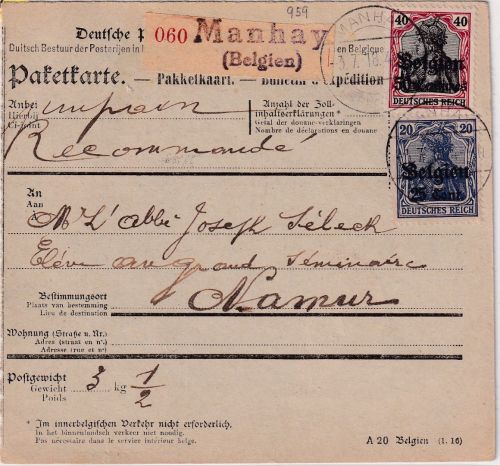 959
Deutsche
Duitsch Bestuur der Posterijen in
en Belgique
060 Manhay
(Belgien)
MANHA
3.7.18.4
40 40
Belgien
50 Centimes
DEUTSCHES REICH
Paketkarte. — Pakketkaart. — Bulletin d'Expédition
Anbei
Hierbij
Ci-joint
un pain
Recommandé
Anzahl der Zoll-
inhaltserklärungen*
Getal der douane-verklaringen
Nombre de déclarations en douane
20 20
Belgien
25 Cent.
DEUTSCHES REICH
An
Aan
A
Mr L'abbé Joseph
Elève au grand séminaire
Bestimmungsort
Plaats van bestemming
Lieu de destination
Namur
Wohnung (Straße u. Nr.)
Adres (straat en nr.)
Adresse (rue et nº)
Postgewicht
Gewicht
Poids
3 kg 1/2
* Im innerbelgischen Verkehr nicht erforderlich.
In het binnenlandsch verkeer niet noodig.
Pas nécessaire dans le service intérieur belge.
A 20 Belgien (1. 16)